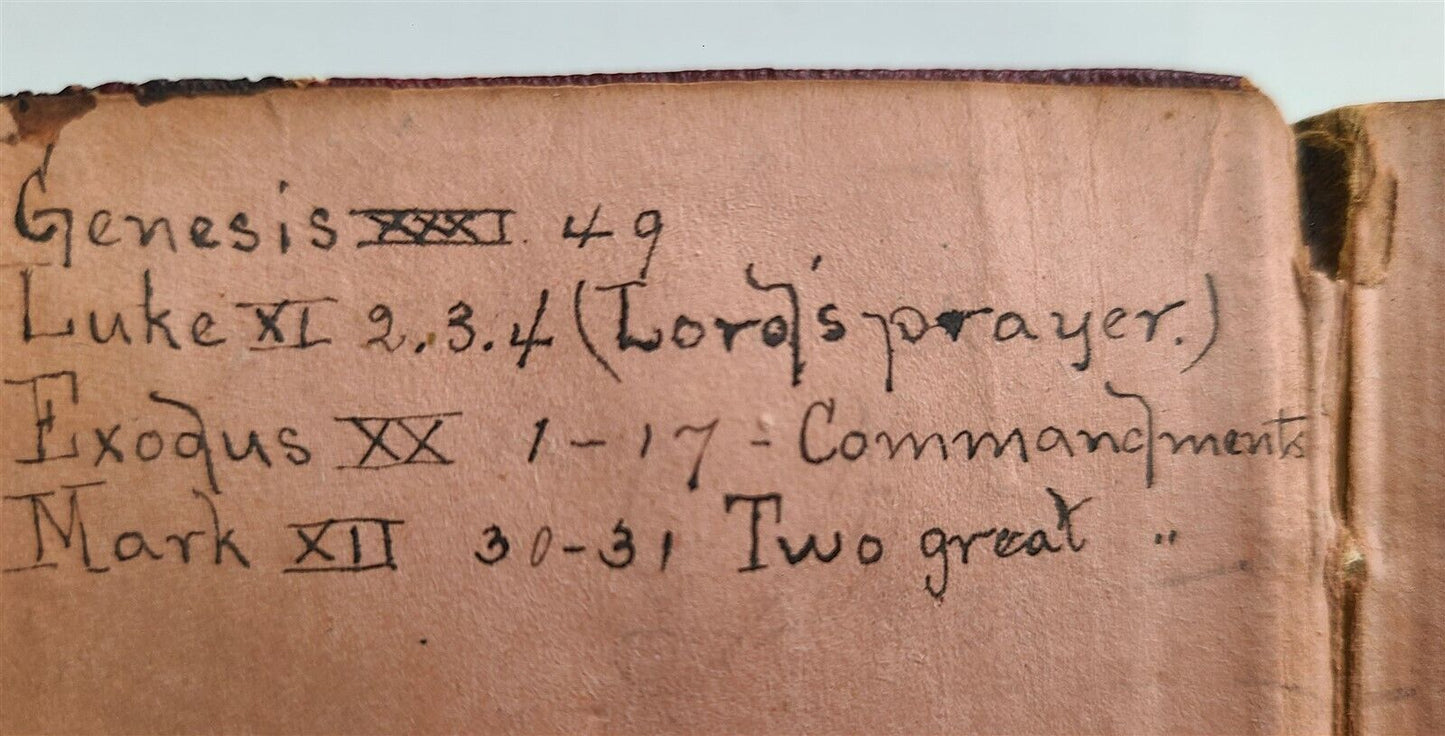 Genesis XXXI. 49
Luke XI 2.3.4 (Lord's prayer.)
Exodus XX 1-17 - Commandments
Mark XII 30-31 Two great "